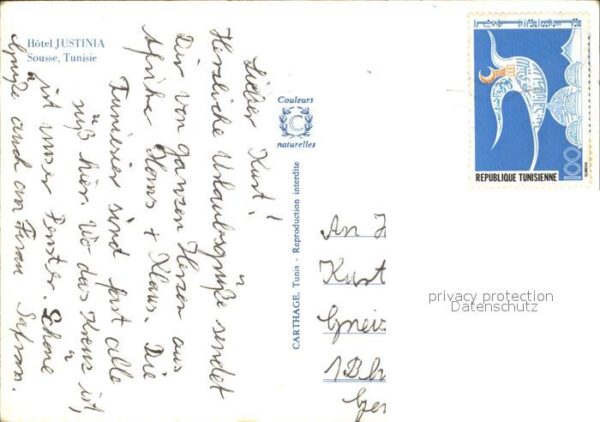 Hôtel JUSTINIA
Sousse, Tunisie
Lieber Kurt!
Herzliche Urlaubsgrüße sendet
Dir von ganzen Herzen aus
Afrika Hans + Klaus. Die
Tunesier sind fast alle
süß hier. Wo das Kreuz ist,
ist unser Fenster. Schöne
Grüße auch an Frau
Couleurs
naturelles
CARTHAGE, Tunis - Reproduction interdite
An H
Kurt
1
REPUBLIQUE TUNISIENNE
100
privacy protection
Datenschutz